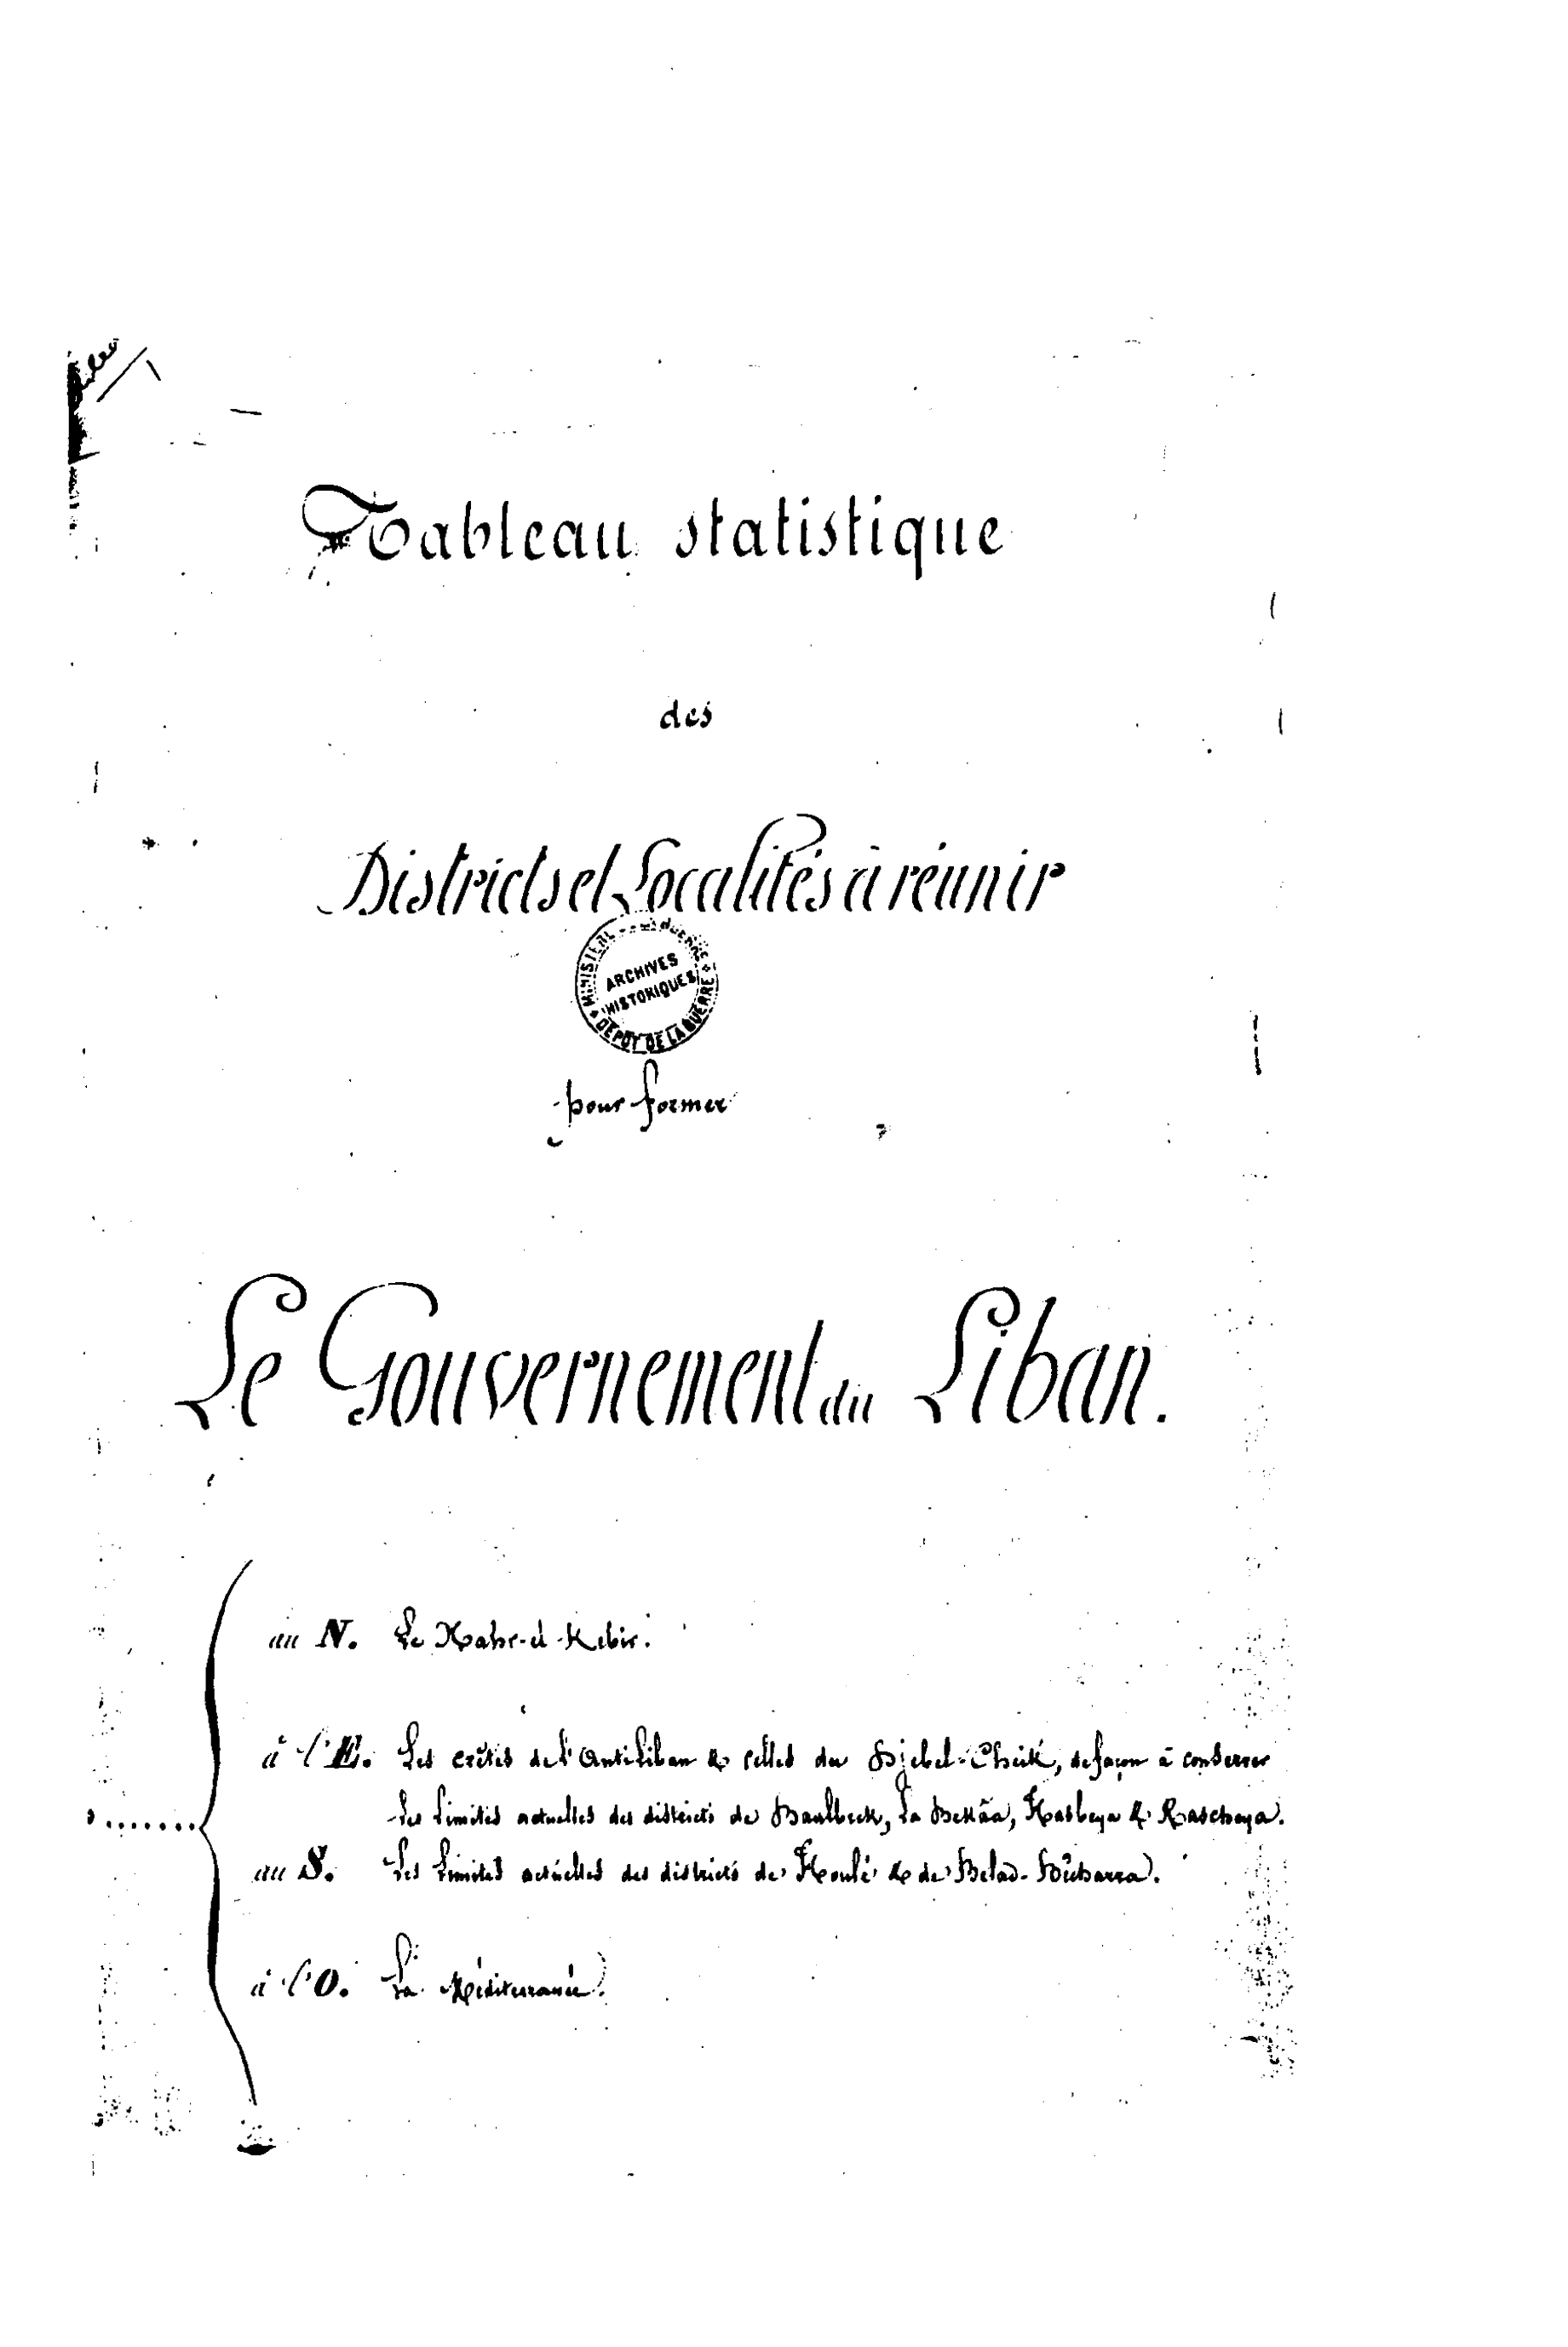 Tableau statistique
des
Districts et Localités à réunir
MINISTÈRE DE LA GUERRE
ARCHIVES
HISTORIQUES
DÉPÔT DE LA GUERRE
pour former
Le Gouvernement du Liban.
au N. Le Nahr-el-Kebir.
à l'E. Les crêtes de l'AntiLiban & celles du Djebel-Cheik, de façon à conserver
les limites actuelles des districts de Baalbeck, la Bekâa, Hasbeya & Raschaya.
au S. Les limites actuelles des districts de Houlé & de Belad-Bûcharra.
à l'O. La Méditerranée.